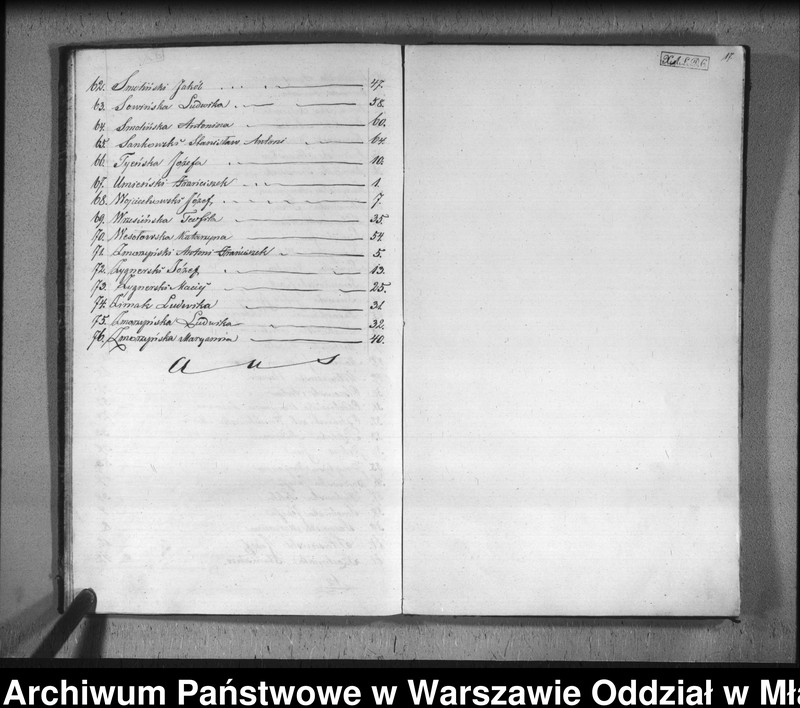 62. Smoliński Jakób 47.
63. Sowińska Ludwika 58.
64. Smolińska Antonina 60.
65. Sankowski Stanisław Antoni 64.
66. Tycńska Józefa 10.
67. Umieński Franciszek 1.
68. Wojciechowski Józef 7.
69. Wrzesińska Teofila 35.
70. Wesołowska Katarzyna 54.
71. Zmorzyński Antoni Franciszek 5.
72. Zygnerski Józef 13.
73. Zygnerski Maciej 25.
74. Zimak Ludwika 31.
75. Zmorzyńska Ludwika 32.
76. Zmorzyńska Maryanna 40.
17.
Archiwum Państwowe w Warszawie Oddział w Mła